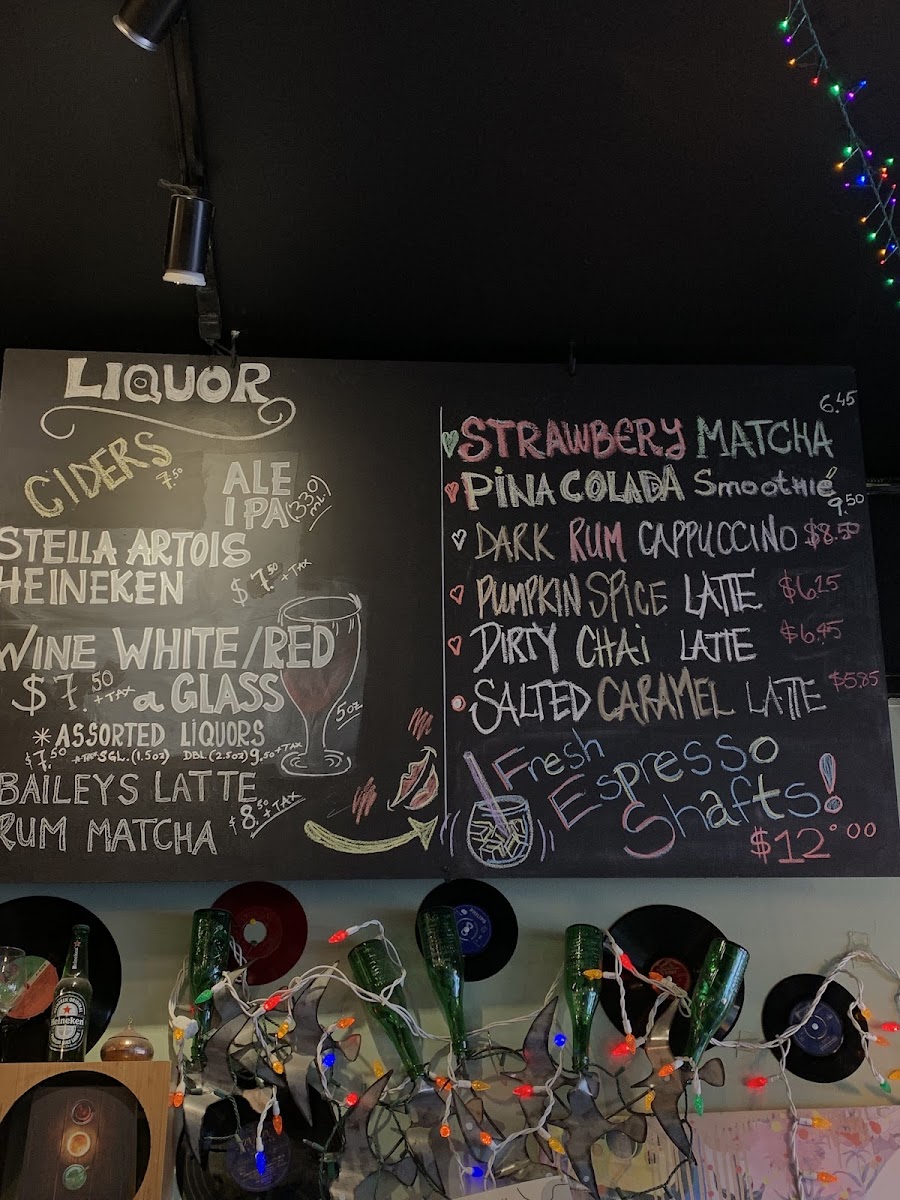 LIQUOR
CIDERS 7.50
ALE
IPA (330 ML.)
STELLA ARTOIS
HEINEKEN $7.50 + TAX
WINE WHITE/RED
$7.50 + TAX a GLASS
5oz
* ASSORTED LIQUORS
$7.50 + TAX SGL. (1.5oz) DBL (2.5oz) 9.50 + TAX
BAILEYS LATTE
RUM MATCHA $8.50 + TAX
6.45
STRAWBERY MATCHA
PINA COLADA Smoothie
9.50
DARK RUM CAPPUCCINO $8.50
PUMPKIN SPICE LATTE $6.25
DIRTY CHAI LATTE $6.45
SALTED CARAMEL LATTE $5.85
Fresh
Espresso
Shafts!
$12.00
Heineken